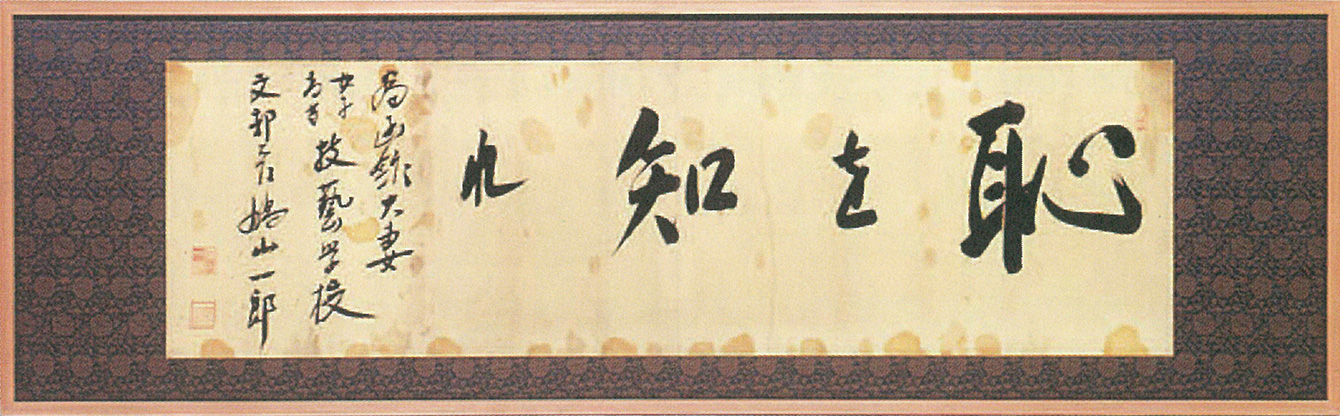 恥を知れ
為函館大妻
女子高等技藝学校
文部大臣鳩山一郎